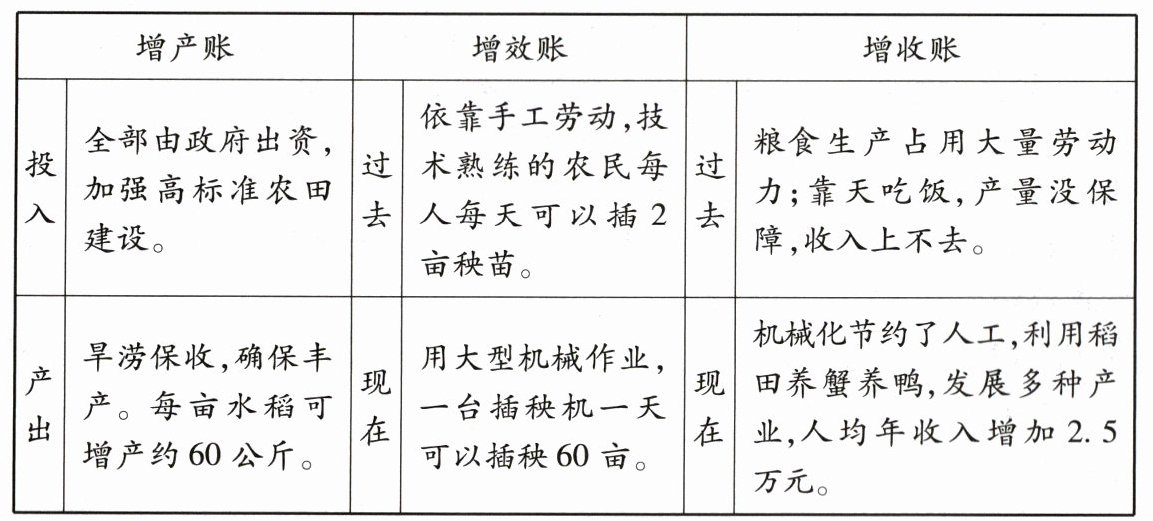 增产账
增效账
增收账
投入
全部由政府出资，
加强高标准农田
建设。
过去
依靠手工劳动，技
术熟练的农民每
人每天可以插2
亩秧苗。
过去
粮食生产占用大量劳动
力；靠天吃饭，产量没保
障，收入上不去。
产出
旱涝保收，确保丰
产。每亩水稻可
增产约60公斤。
现在
用大型机械作业，
一台插秧机一天
可以插秧60亩。
现在
机械化节约了人工，利用稻
田养蟹养鸭，发展多种产
业，人均年收入增加2.5
万元。